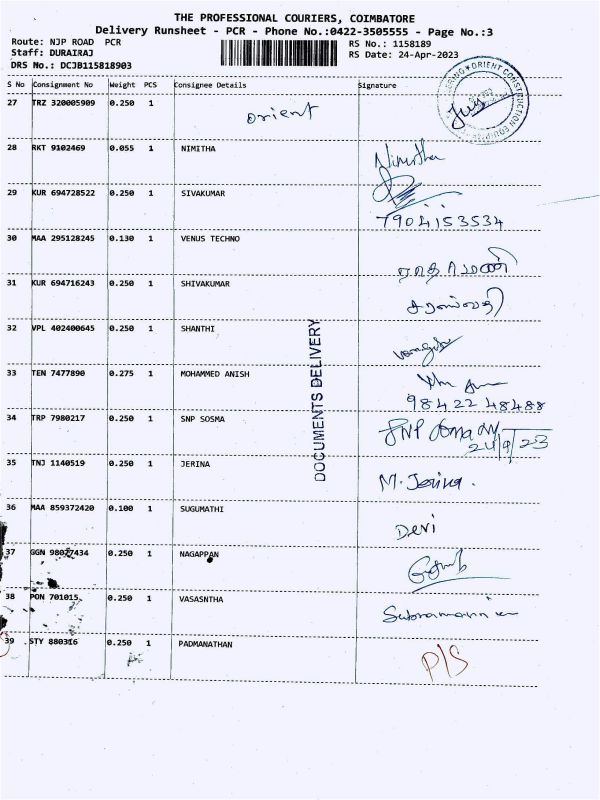 THE PROFESSIONAL COURIERS, COIMBATORE
Delivery Runsheet - PCR - Phone No.:0422-3505555 - Page No.:3
Route: NJP ROAD PCR
RS No.: 1158189
Staff: DURAIRAJ
RS Date: 24-Apr-2023
DRS No.: DCJB115818903
S No Consignment No Weight PCS Consignee Details Signature
27 TRZ 320005909 0.250 1 orient
ORIENT CONSTRUCTION EQUIP
28 RKT 9102469 0.055 1 NIMITHA Nimitha
29 KUR 694728522 0.250 1 SIVAKUMAR
7904153534
30 MAA 295128245 0.130 1 VENUS TECHNO
31 KUR 694716243 0.250 1 SHIVAKUMAR சரஸ்வதி
32 VPL 402400645 0.250 1 SHANTHI
33 TEN 7477890 0.275 1 MOHAMMED ANISH
98422 48488
34 TRP 7980217 0.250 1 SNP SOSMA SNP
35 TNJ 1140519 0.250 1 JERINA M. Jerina.
36 MAA 859372420 0.100 1 SUGUMATHI Devi
37 GGN 98077434 0.250 1 NAGAPPAN
38 PON 701015 0.250 1 VASASNTHA
39 STY 880316 0.250 1 PADMANATHAN P/S
DOCUMENTS DELIVERY